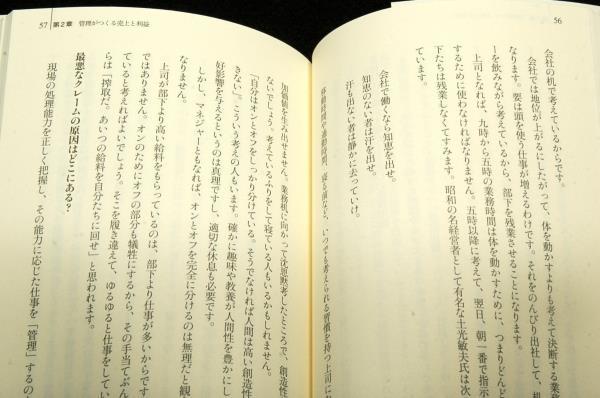 56
会社の机で考えているからです。
会社では地位が上がるにしたがって、体を動かすよりも考えて決断する業務
なります。要は頭を使う仕事が増えるわけです。それをのんびり出社して、机
ーを飲みながら考えているから、部下を残業させることになります。
上司となれば、九時から五時の業務時間は体を動かすために、つまりどんど
するために使わなければなりません。五時以降に考えて、翌日、朝一番で指示
下たちは残業しなくてすみます。昭和の名経営者として有名な土光敏夫氏は次
ています。
会社で働くなら知恵を出せ。
知恵のない者は汗を出せ。
汗も出ない者は静かに去っていけ。
移動時間や通勤時間、寝る前など、いつでも考えられる習慣を持つ上司にな
57 第2章 管理がつくる売上と利益
加価値を生み出せません。業務机に向かって沈思黙考したところで、創造性
ないでしょう。考えているふりをして寝ている人もいるかもしれません。
「自分はオンとオフをしっかり分けている。そうでなければ人間は高い創造性
きない」。こういう考えの人もいます。確かに趣味や教養が人間性を豊かにし
好影響を与えるというのは真理ですし、適切な休息も必要です。
しかし、マネジャーともなれば、オンとオフを完全に分けるのは無理だと観
なりません。
上司が部下より高い給料をもらっているのは、部下より仕事が多いからです
ではありません。オンのためにオフの部分も犠牲にするから、その手当てぶん
ていると考えればよいでしょう。そこを履き違えて、ゆるゆると仕事をしてい
らは「搾取だ。あいつの給料を自分たちに回せ」と思われます。
最悪なクレームの原因はどこにある?
現場の処理能力を正しく把握し、その能力に応じた仕事を「管理」するの